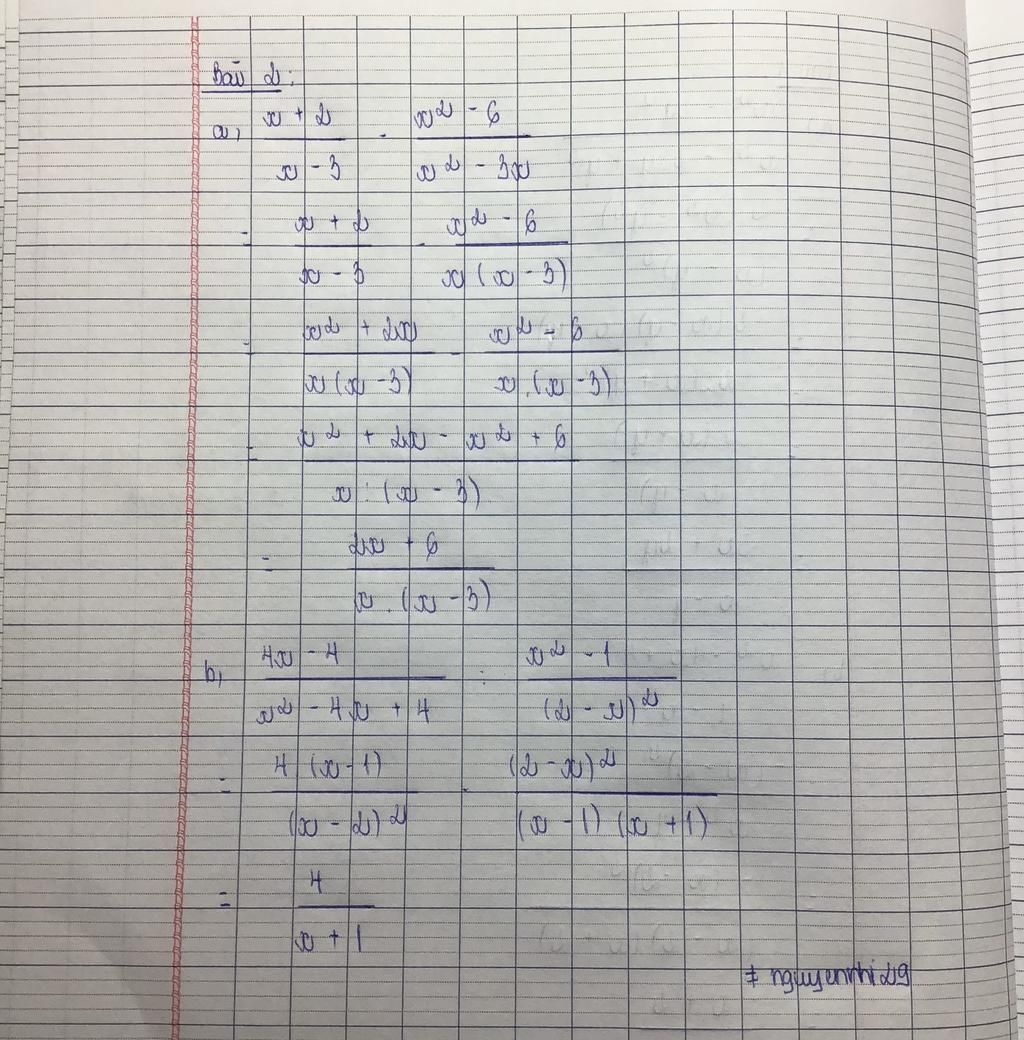 Bài 2:
a, x + 2 / x - 3 - x² - 6 / x² - 3x
= x + 2 / x - 3 - x² - 6 / x (x - 3)
= x² + 2x / x (x - 3) - x² - 6 / x . (x - 3)
= x² + 2x - x² + 6 / x . (x - 3)
= 2x + 6 / x . (x - 3)
b, 4x - 4 / x² - 4x + 4 : x² - 1 / (2 - x)²
= 4 (x - 1) / (x - 2)² . (2 - x)² / (x - 1) (x + 1)
= 4 / x + 1
# nguyennhi29